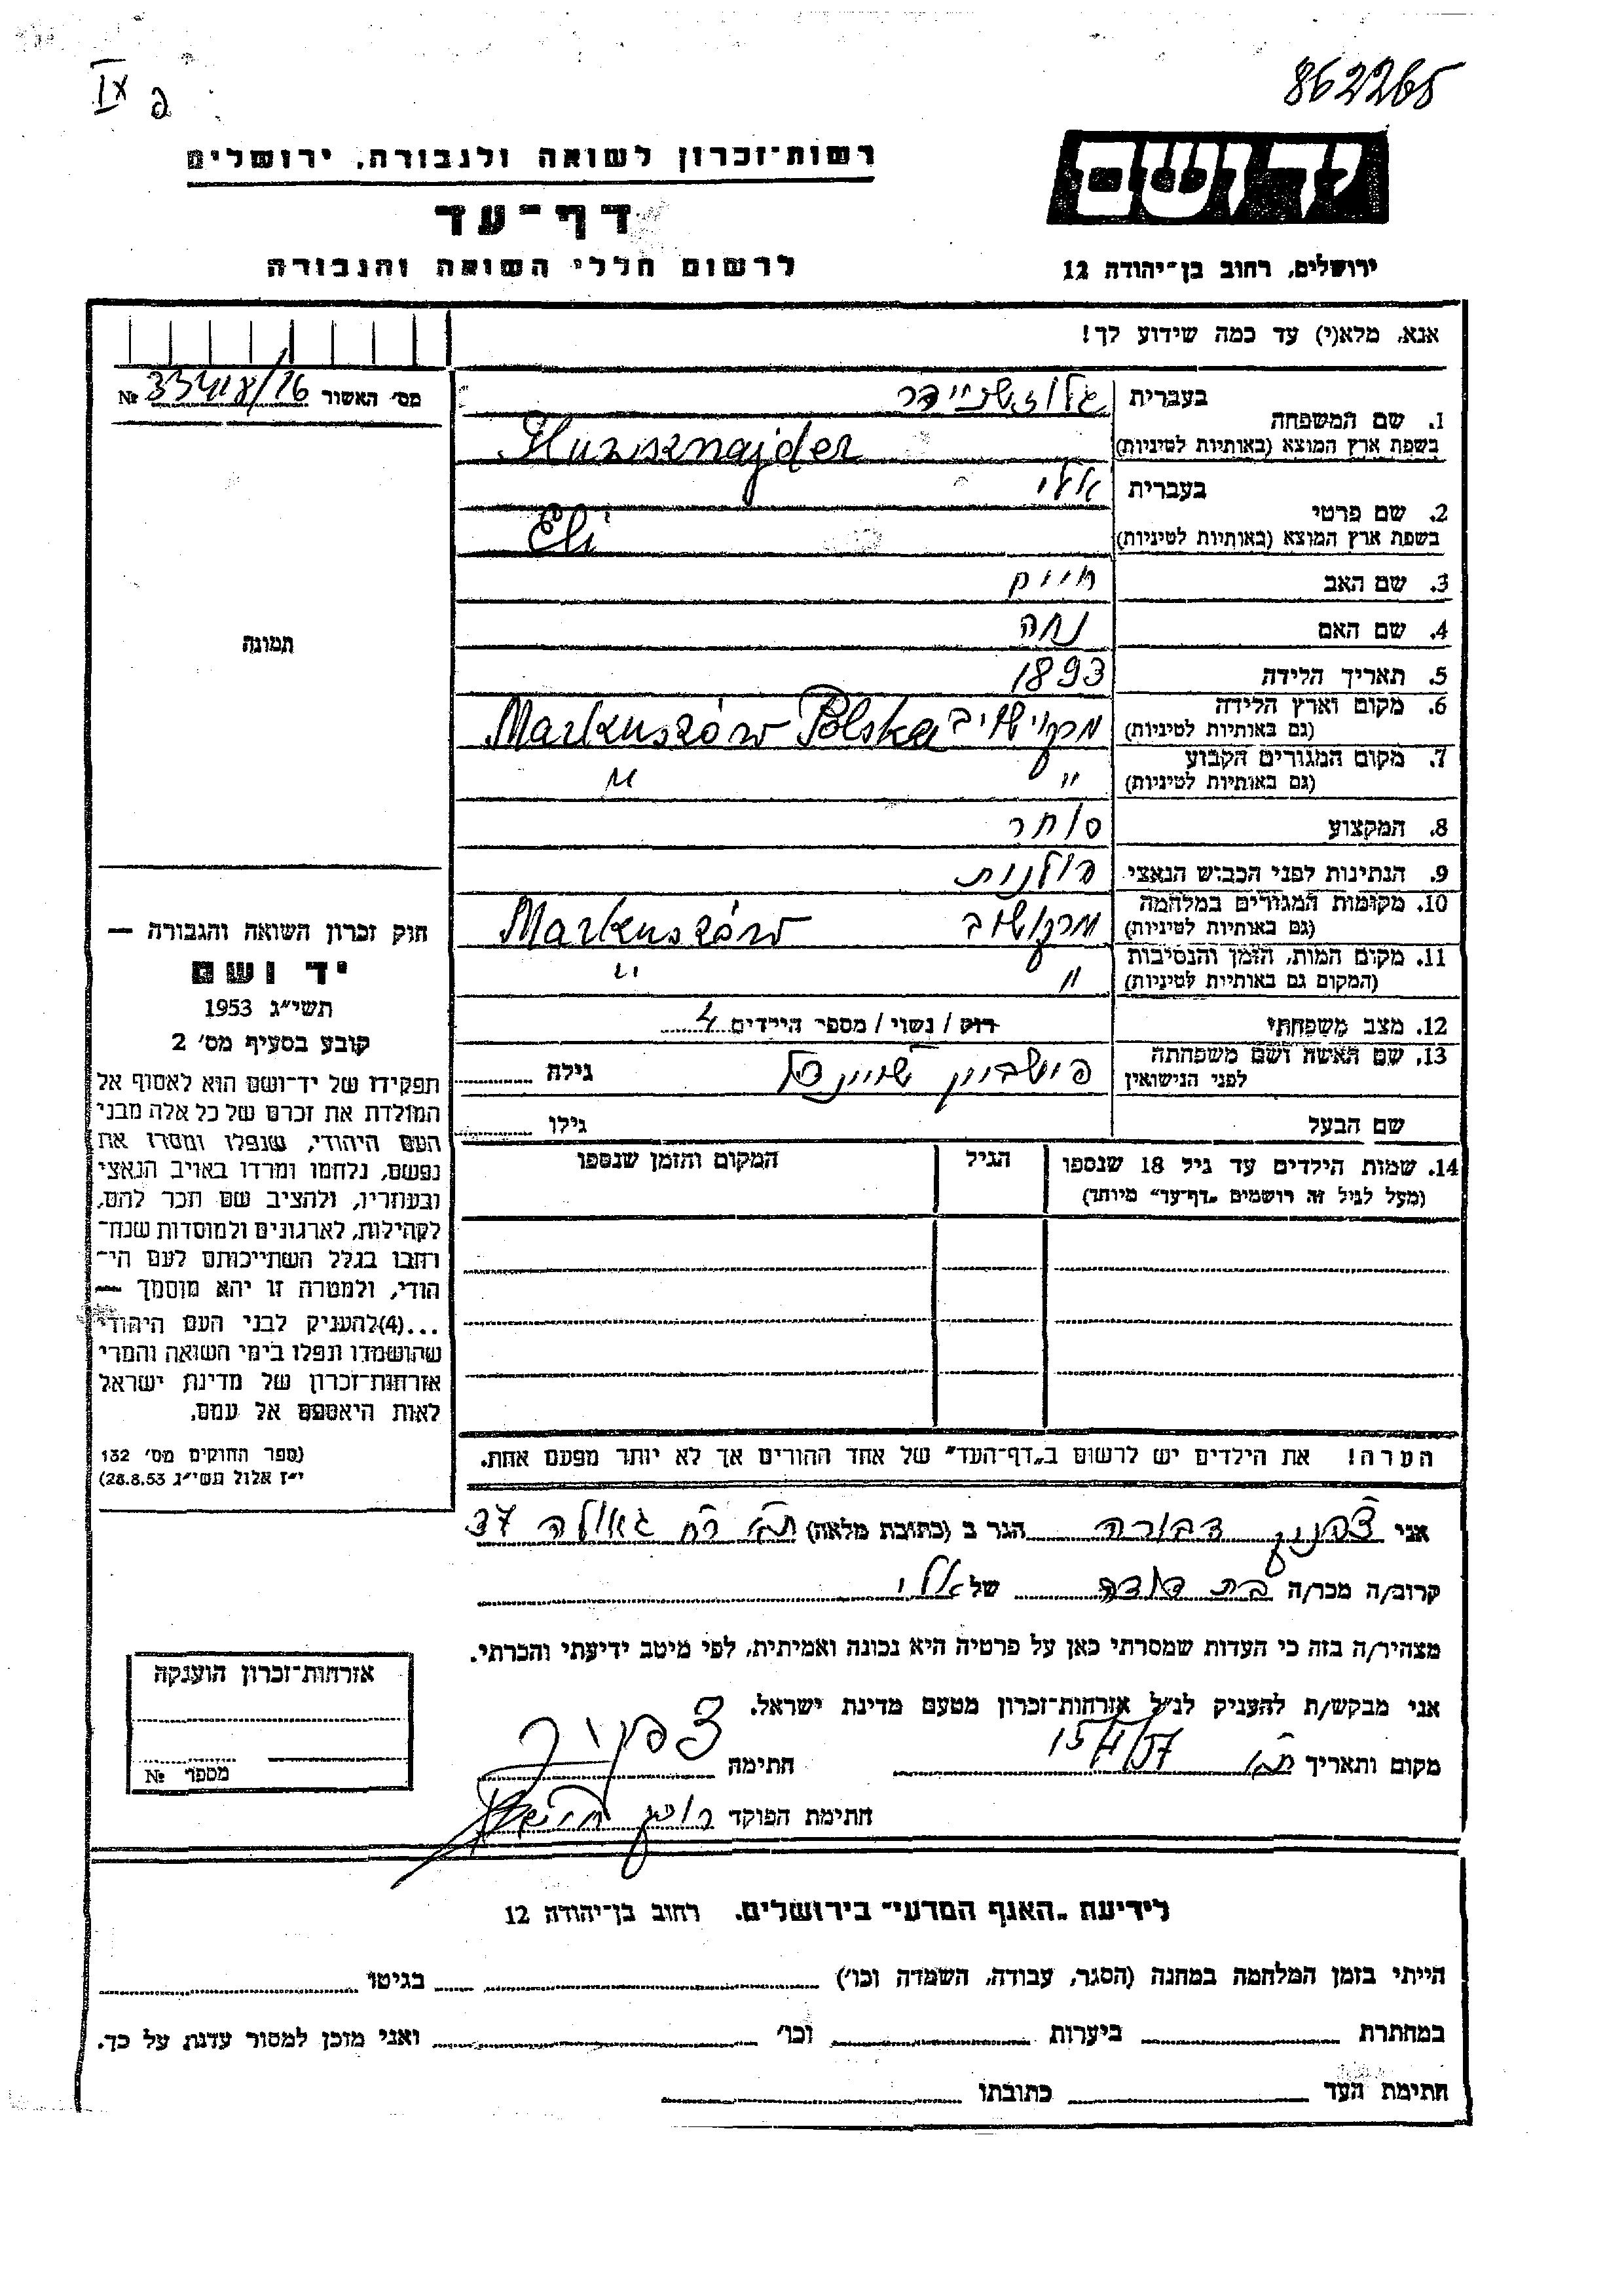 862265
IX פ
יד ושם
רשות־זכרון לשואה ולגבורה, ירושלים
דף־עד
לרשום חללי השואה והגבורה
ירושלים, רחוב בן־יהודה 12
אנא, מלא(י) עד כמה שידוע לך!
מס׳ האשור №
1. שם המשפחה
בעברית
בשפת ארץ המוצא (באותיות לטיניות)
2. שם פרטי
בעברית אלי
בשפת ארץ המוצא (באותיות לטיניות) Eli
3. שם האב חיים
4. שם האם נחה
5. תאריך הלידה 1893
6. מקום וארץ הלידה Markuszów Polska
(גם באותיות לטיניות)
7. מקום המגורים הקבוע " "
(גם באותיות לטיניות)
8. המקצוע סוחר
9. הנתינות לפני הכבוש הנאצי פולנית
10. מקומות המגורים במלחמה מרקושוב Markuszów
(גם באותיות לטיניות)
11. מקום המות, הזמן והנסיבות " "
(המקום גם באותיות לטיניות)
12. מצב משפחתי רוק / נשוי / מספר הילדים 4
13. שם האשה ושם משפחתה
לפני הנישואין
גילה
שם הבעל
גילו
14. שמות הילדים עד גיל 18 שנספו
(מעל לגיל זה רושמים „דף־עד" מיוחד)
הגיל
המקום והזמן שנספו
הערה! את הילדים יש לרשום ב„דף־העד" של אחד ההורים אך לא יותר מפעם אחת.
תמונה
חוק זכרון השואה והגבורה —
יד ושם
תשי״ג 1953
קובע בסעיף מס׳ 2
תפקידו של יד־ושם הוא לאסוף אל
המולדת את זכרם של כל אלה מבני
העם היהודי, שנפלו ומסרו את
נפשם, נלחמו ומרדו באויב הנאצי
ובעוזריו, ולהציב שם וזכר להם,
לקהילות, לארגונים ולמוסדות שנח־
רבו בגלל השתייכותם לעם הי־
הודי, ולמטרה זו יהא מוסמך —
...(4)להעניק לבני העם היהודי
שהושמדו ונפלו בימי השואה והמרי
אזרחות־זכרון של מדינת ישראל
לאות היאספם אל עמם.
(ספר החוקים מס׳ 132
י״ז אלול תשי״ג 28.8.53)
אני דבורה הגר ב (כתובת מלאה) ת״א רח׳ גאולה 37
קרוב/ה מכר/ה בת דודה של אלי
מצהיר/ה בזה כי העדות שמסרתי כאן על פרטיה היא נכונה ואמיתית, לפי מיטב ידיעתי והכרתי.
אני מבקש/ת להעניק לנ״ל אזרחות־זכרון מטעם מדינת ישראל.
מקום ותאריך ת״א חתימה
חתימת הפוקד
אזרחות־זכרון הוענקה
מספר №
לידיעת „האגף המדעי" בירושלים. רחוב בן־יהודה 12
הייתי בזמן המלחמה במחנה (הסגר, עבודה, השמדה וכו׳) בגיטו
במחתרת ביערות וכו׳ ואני מוכן למסור עדות על כך.
חתימת העד כתובתו